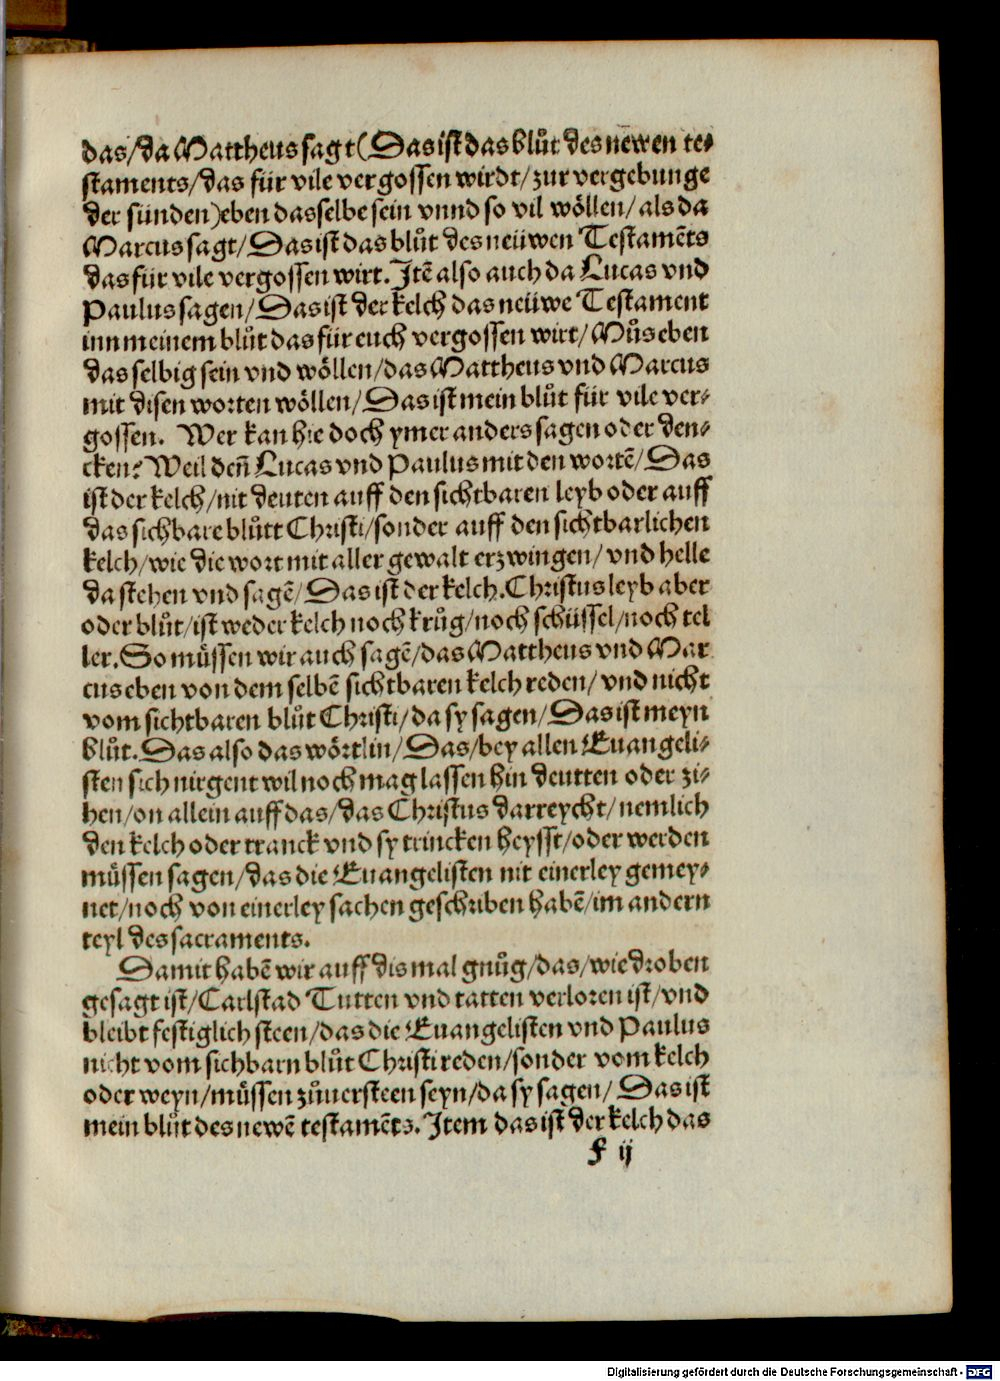 das/da Mattheus sagt (Das ist das blůt des newen te-
staments/das für vile vergossen wirdt/zur vergebunge
der sünden) eben dasselbe sein vnnd so vil wöllen/als da
Marcus sagt/Das ist das blůt des neüwen Testamēts
das für vile vergossen wirt. Jtē also auch da Lucas vnd
Paulus sagen/Das ist der kelch das neüwe Testament
inn meinem blůt das für euch vergossen wirt/Můs eben
das selbig sein vnd wöllen/das Mattheus vnd Marcus
mit disen worten wöllen/Das ist mein blůt für vile ver-
gossen. Wer kan hie doch ymer anders sagen oder den-
cken? Weil deñ Lucas vnd Paulus mit den wortē/Das
ist der kelch/nit deuten auff den sichtbaren leyb oder auff
das sichbare blůtt Christi/sonder auff den sichtbarlichen
kelch/wie die wort mit aller gewalt erzwingen/vnd helle
da stehen vnd sagē/Das ist der kelch. Christus leyb aber
oder blůt/ist weder kelch noch krůg/noch schüssel/noch tel
ler. So müssen wir auch sagē/das Mattheus vnd Mar
cus eben von dem selbē sichtbaren kelch reden/vnd nicht
vom sichtbaren blůt Christi/da sy sagen/Das ist meyn
blůt. Das also das wörtlin/Das/bey allen Euangeli-
sten sich nirgent wil noch mag lassen hin deutten oder zi-
hen/on allein auff das/das Christus darreycht/nemlich
den kelch oder tranck vnd sy trincken heysst/oder werden
müssen sagen/das die Euangelisten nit einerley gemey-
net/noch von einerley sachen geschriben habē/im andern
teyl des sacraments.
Damit habē wir auff dis mal gnůg/das/wie droben
gesagt ist/Carlstad Tutten vnd tatten verloren ist/vnd
bleibt festiglich steen/das die Euangelisten vnd Paulus
nicht vom sichbarn blůt Christi reden/sonder vom kelch
oder weyn/müssen zůuersteen seyn/da sy sagen/Das ist
mein blůt des newē testamēts. Jtem das ist der kelch das
f ij
Digitalisierung gefördert durch die Deutsche Forschungsgemeinschaft - DFG